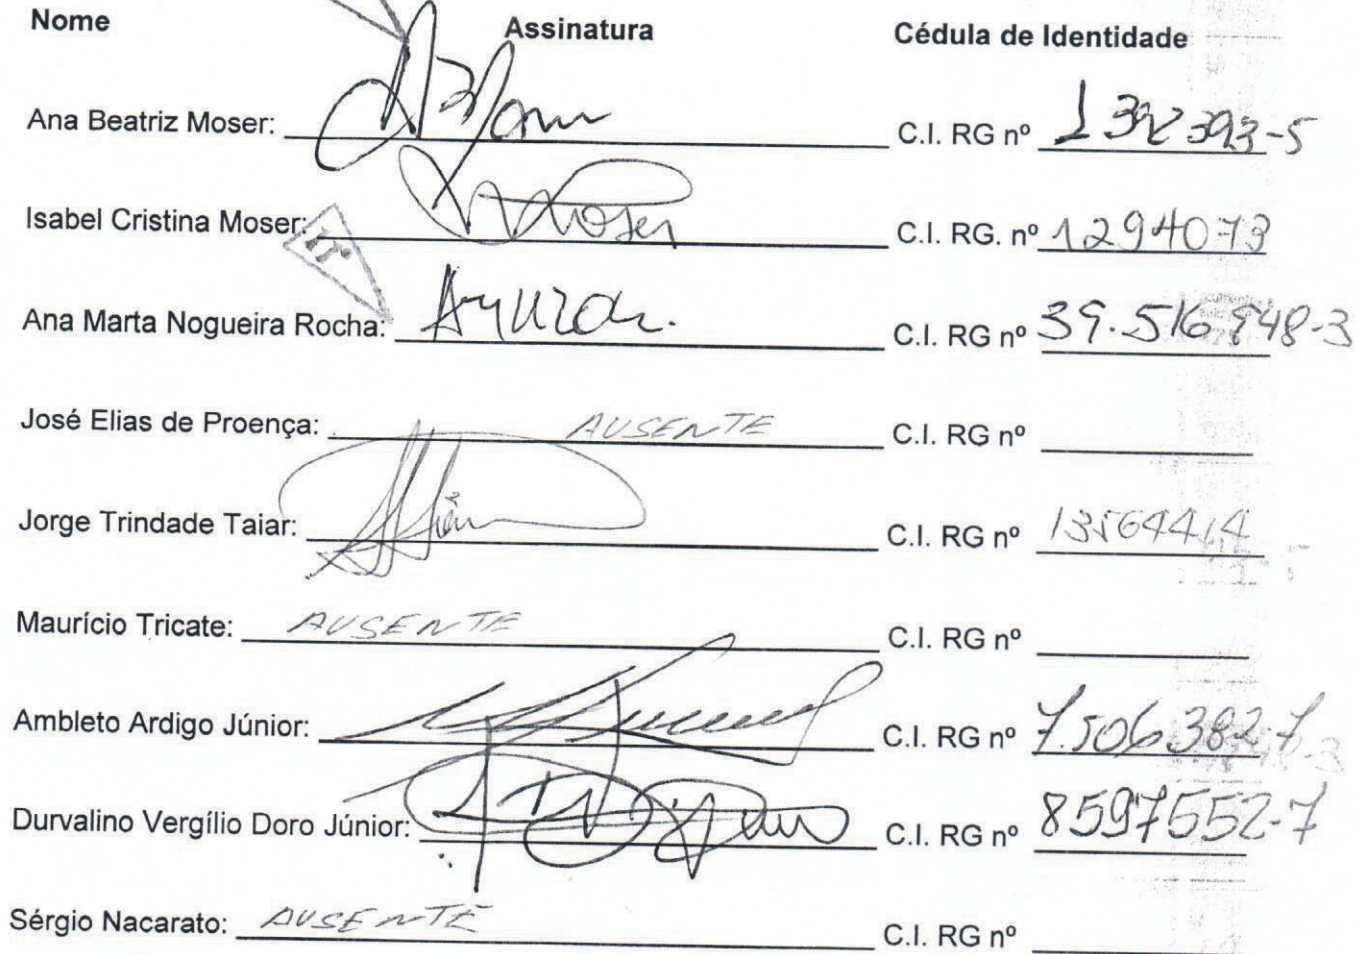 Nome Assinatura Cédula de Identidade
Ana Beatriz Moser: C.I. RG nº 1392393-5
Isabel Cristina Moser: Moser C.I. RG. nº 1294073
Ana Marta Nogueira Rocha: C.I. RG nº 39.516.948-3
José Elias de Proença: AUSENTE C.I. RG nº
Jorge Trindade Taiar: C.I. RG nº
Maurício Tricate: AUSENTE C.I. RG nº
Ambleto Ardigo Júnior: C.I. RG nº 7.506.382-7
Durvalino Vergílio Doro Júnior: C.I. RG nº 8597552-7
Sérgio Nacarato: AUSENTE C.I. RG nº